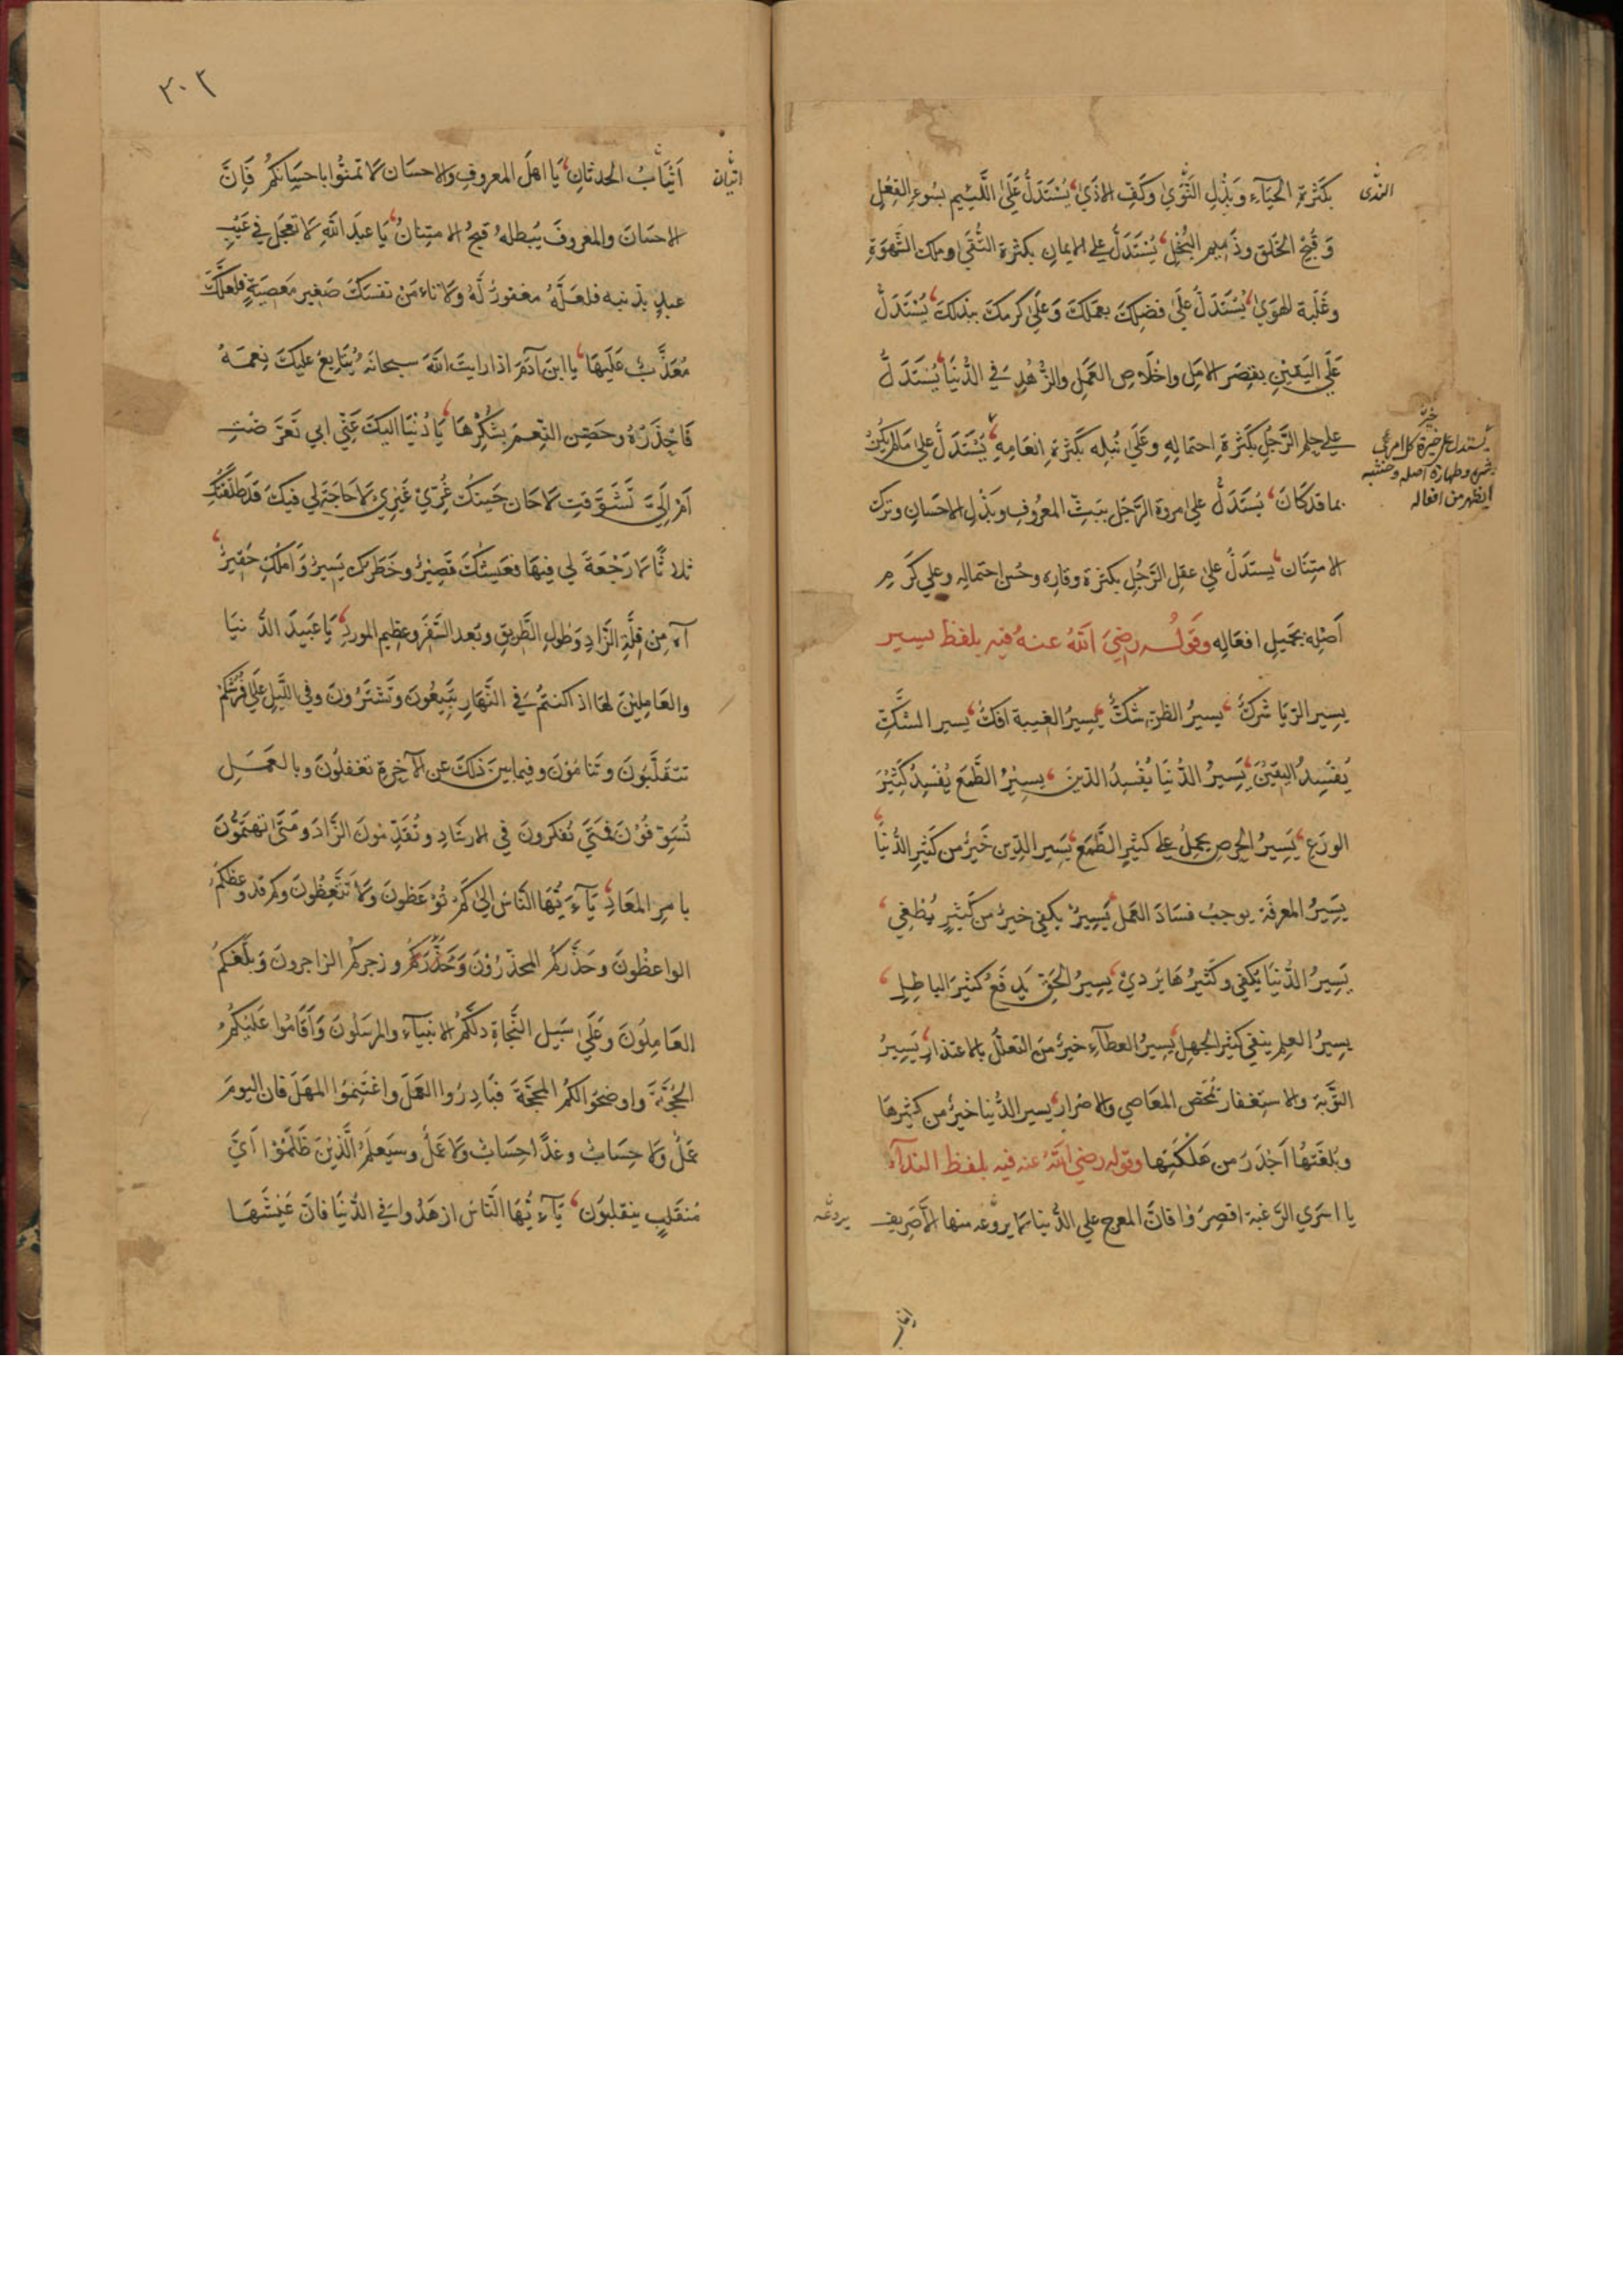 بكثرة الحياء وبذل النَّوى وكفّ الاذى يُستدلّ على اللَّئيم بسوء الفعل
الندى
وقبح الخلق وذميم البخل يُستدلّ على الايمان بكثرة التُّقى وملك الشّهوة
وغلبة الهوى يُستدلّ على فضلك بعملك وعلى كرمك ببذلك يُستدلّ
على اليقين بقصر الامل واخلاص العمل والزُّهد في الدُّنيا يُستدلّ
على حلم الرَّجل بكثرة احتماله وعلى نُبله بكثرة انعامه يُستدلّ على ما لم يكن
يستدل على خيرة كل امرئ
وطهارة اصله
من افعاله
بما قد كان يُستدلّ على مروة الرَّجل ببثّ المعروف وبذل الاحسان وترك
الامتنان يستدلّ على عقل الرَّجل بكثرة وقاره وحُسن احتماله وعلى كرم
اصله بجميل افعاله وقوله رضي الله عنه فيه بلفظ يسير
يسير الرّيا شرك يسيرُ الظن شكّ يسيرُ الغيبة افك يسير الشكّ
يُفسدُ اليقين يسيرُ الدُّنيا يُفسدُ الدّين يسيرُ الطَّمع يُفسد كثير
الورع يسيرُ الحرص يحملُ على كثير الطَّمع يسير الدّين خيرٌ من كثير الدُّنيا
يسيرُ المعرفة يوجب فساد العمل يسيرٌ يكفي خيرٌ من كثيرٍ يُطغي
يسيرُ الدُّنيا يكفي وكثيرُها يردي يسيرُ الحقّ يدفعُ كثير الباطل
يسيرُ العلم ينفي كثير الجهل يسيرُ العطاء خيرٌ من التعلّل بالاعتذار يسيرُ
التَّوبة والاستغفار يُمحّص المعاصي والاصرار يسير الدُّنيا خيرٌ من كثيرها
وبلغتها اجدر من هلكتها وقوله رضي الله عنه فيه بلفظ النداء
يا اسرى الرَّغبة اقصروا فانّ المعرج على الدُّنيا لا يروّعه منها الاّ صريف
يردعه
انياب
٢٠٣
انياب الحدثان يا اهل المعروف والاحسان لا تمنُّوا باحسانكم فانّ
اتيان
الاحسان والمعروف يُبطلهُ قبحُ الامتنان يا عبد الله لا تعجل في عيب
عبدٍ بذنبه فلعلّهُ مغفورٌ لهُ ولا تامن نفسك صغير معصيةٍ فلعلّك
مُعذَّبٌ عليها يا ابن آدم اذا رايت الله سبحانه يُتابع عليك نعمهُ
فاحذرهُ وحصّن النّعم بشكرها يا دُنيا اليك عنّي ابي تعرّضت
ام اليّ تشوّقت لا حان حينك غُرّي غيري لا حاجة لي فيك قد طلّقتك
ثلاثا لا رجعة لي فيها فعيشك قصيرٌ وخطرك يسيرٌ واملك حقيرٌ
آه من قلّة الزّاد وطول الطّريق وبُعد السّفر وعظيم المورد يا عبيد الدّنيا
والعاملين لها اذا كنتم في النّهار تبيعون وتشترون وفي اللّيل على فُرُشكم
تتقلّبون وتنامون وفيما بين ذلك عن الآخرة تغفلون وبالعمل
تُسوّفون فمتى تُفكرون في الارشاد وتُقدّمون الزّاد ومتى تهتمّون
بامر المعاد يآ ايّها النّاس الى كم تُوعظون ولا تتّعظون وكم قد وعظكم
الواعظون وحذّركم المحذّرون وزجركم الزاجرون وبلّغكم
العاملون وعلى سبيل النّجاة دلّكم الانبياء والمرسلون واقاموا عليكم
الحُجّة واوضحوا لكم المحجّة فبادروا العمل واغتنموا المهل فان اليوم
عملٌ ولا حسابٌ وغدًا حسابٌ ولا عملٌ وسيعلم الّذين ظلموا ايّ
مُنقلبٍ ينقلبون يآ ايّها النّاس ازهدوا في الدُّنيا فانّ عيشها